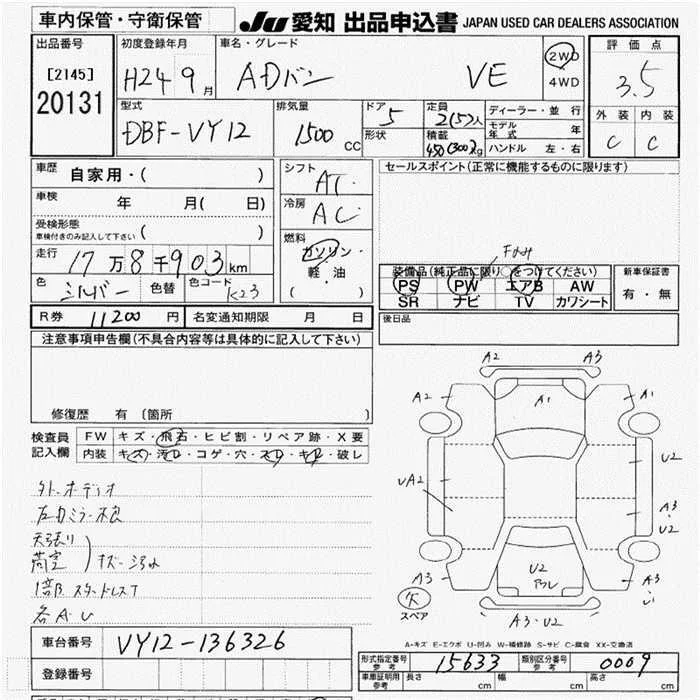 車内保管・守衛保管
JU 愛知 出品申込書 JAPAN USED CAR DEALERS ASSOCIATION
出品番号
[2145]
20131
初度登録年月
H24 9月
車名・グレード
ADバン VE
2WD
4WD
評価点
3.5
外装 内装
C C
型式
DBF-VY12
排気量
1500 cc
ドア
5
形状
定員
2(5)人
積載
450(300)kg
ディーラー・並行
モデル年式 年
ハンドル 左・右
車歴 自家用・( )
車検 年 月( 日)
受検形態
車検付きのみ記入して下さい ( )
走行 17万8千903km
色 シルバー 色替 色コード K23
シフト
AT
冷房
AC
燃料
ガソリン・
軽油
( )
セールスポイント(正常に機能するものに限ります)
装備品(純正品に限り○をつけてください)
PS PW エアB AW
SR ナビ TV カワシート
新車保証書
有・無
R券 11200円 名変通知期限 月 日
後日品
注意事項申告欄(不具合内容等は具体的に記入して下さい)
修復歴 有 〔箇所
検査員
記入欄
FW キズ・飛石・ヒビ割・リペア跡・X要
内装 キズ・汚レ・コゲ・穴・スレ・キレ・破レ
外オーディオ
左カミラー不良
天張り
荷室
キズ・汚れ
1部スタッドレスT
各A・U
A2 A3
A2 A1 A1
U2
UA2
A3
U2
U2
A3 A3
スペア
A3・U2
A-キズ E-エクボ U-凹み W-補修跡 S-サビ C-腐食 XX-交換済
車台番号 VY12-136326
登録番号
形式指定番号
参考
15633
類別区分番号
参考
0009
車庫証明用
参考
長さ cm 幅 cm 高さ cm